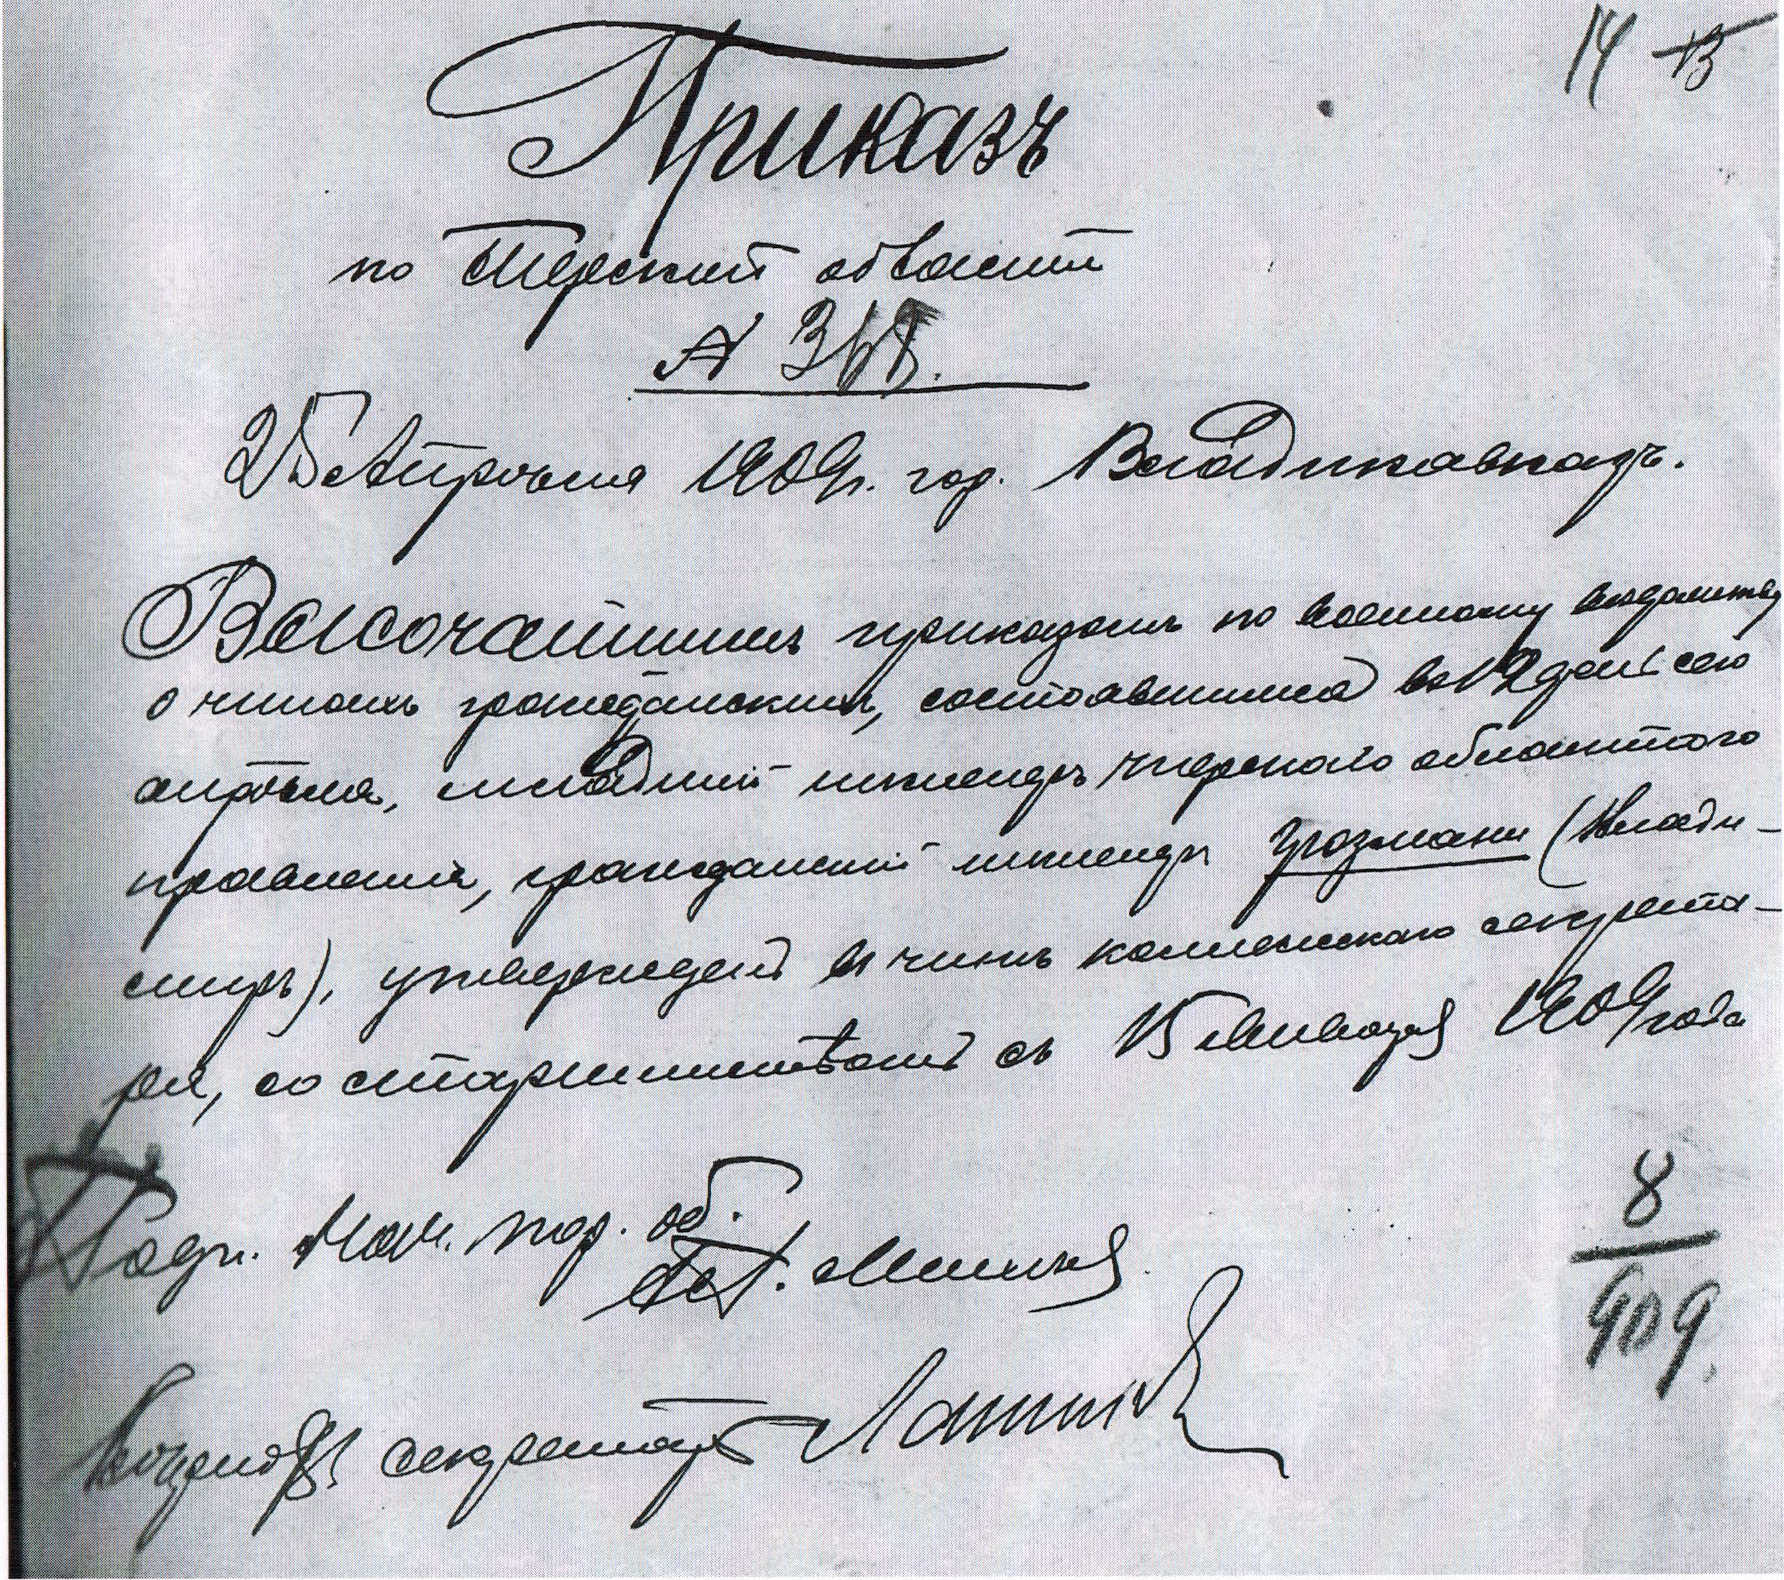 14 13
Приказъ
по Терской области
№ 368.
25 Апрѣля 1909 г. гор. Владикавказъ.
Высочайшимъ приказомъ по военному вѣдомству
о чинахъ гражданскихъ, состоявшимся въ 12 день сего
апрѣля, младшій инженеръ Терскаго областного
правленія, гражданскій инженеръ Грозмани (Влади-
миръ), утвержденъ въ чинѣ коллежскаго секрета-
ря, со старшинствомъ съ 15 января 1909 года
Подп. Нач. об.
8
909
секретарь